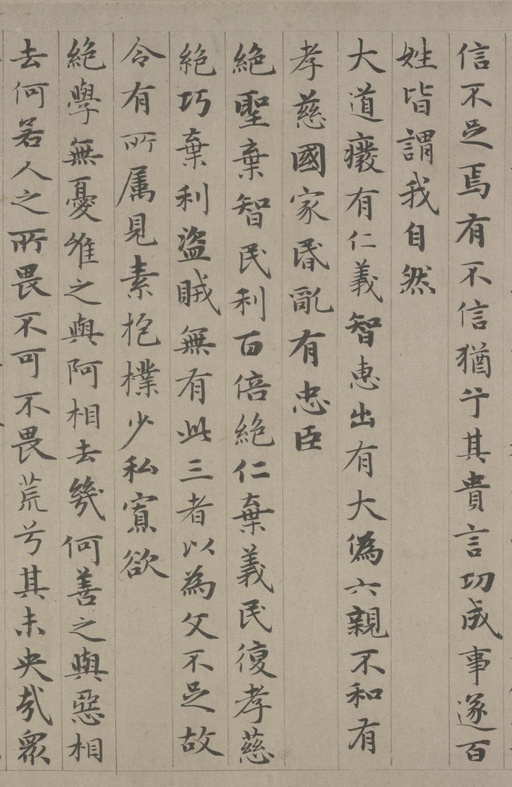 信不足焉有不信猶兮其貴言功成事遂百
姓皆謂我自然
大道癈有仁義智惠出有大偽六親不和有
孝慈國家昏亂有忠臣
絕聖棄智民利百倍絕仁棄義民復孝慈
絕巧棄利盜賊無有此三者以為父不足故
令有所属見素抱樸少私寡欲
絕學無憂唯之與阿相去幾何善之與惡相
去何若人之所畏不可不畏荒兮其未央哉眾